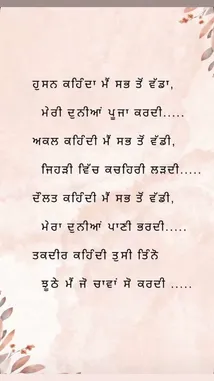 ਹੁਸਨ ਕਹਿੰਦਾ ਮੈਂ ਸਭ ਤੋਂ ਵੱਡਾ,
ਮੇਰੀ ਦੁਨੀਆਂ ਪੂਜਾ ਕਰਦੀ.....
ਅਕਲ ਕਹਿੰਦੀ ਮੈਂ ਸਭ ਤੋਂ ਵੱਡੀ,
ਜਿਹੜੀ ਵਿੱਚ ਕਚਹਿਰੀ ਲੜਦੀ.....
ਦੌਲਤ ਕਹਿੰਦੀ ਮੈਂ ਸਭ ਤੋਂ ਵੱਡੀ,
ਮੇਰਾ ਦੁਨੀਆਂ ਪਾਣੀ ਭਰਦੀ.....
ਤਕਦੀਰ ਕਹਿੰਦੀ ਤੁਸੀ ਤਿੰਨੋ
ਝੂਠੇ ਮੈਂ ਜੋ ਚਾਵਾਂ ਸੋ ਕਰਦੀ .....